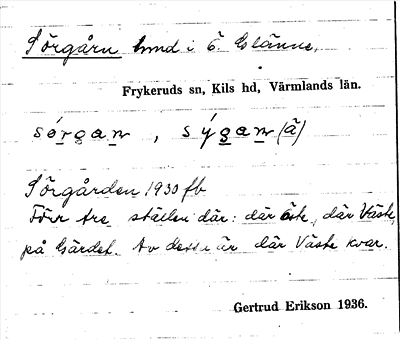 Sörgårn hmd i Ö. Elänne,
Frykeruds sn, Kils hd, Värmlands län.
sórgaɳ , sýgaɳ (ä)
Sörgården 1930 fb
Förr tre ställen där: där öste, där Väste,
på Gärdet. Av dessa är där Väste kvar.
Gertrud Erikson 1936.